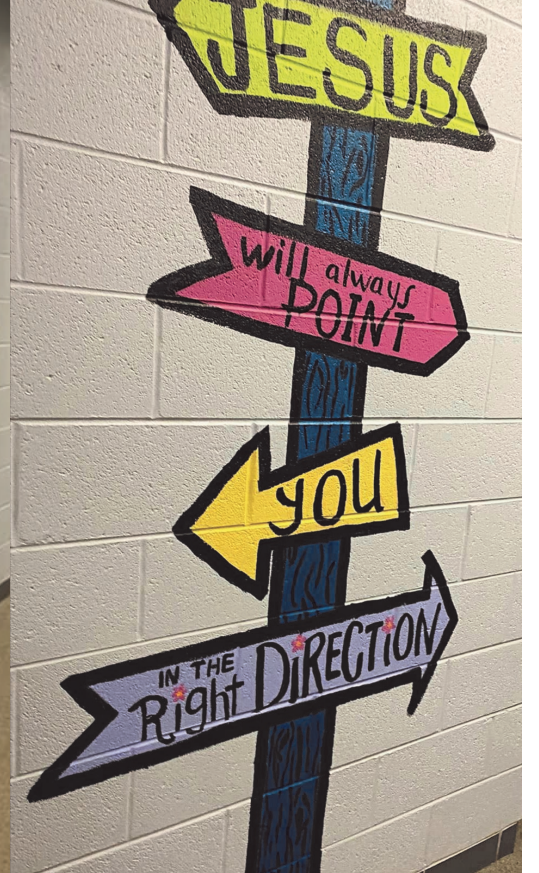 JESUS
will always
POINT
you
IN THE
Right DiRECTiON